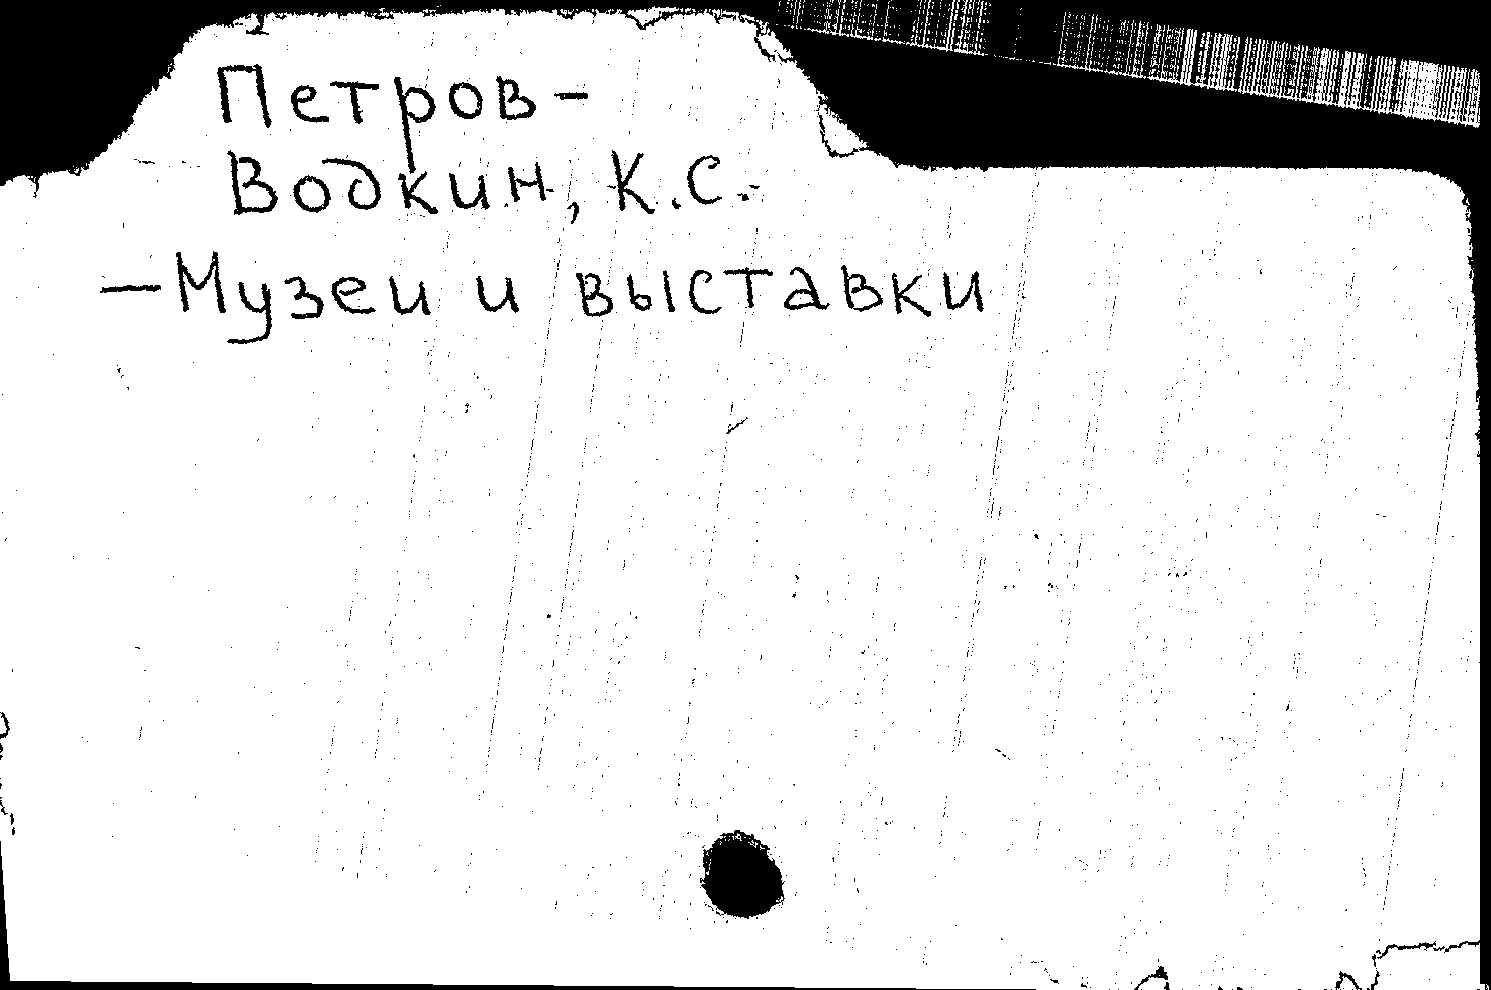 Петров-
Водкин, К.С.
—Музеи и выставки